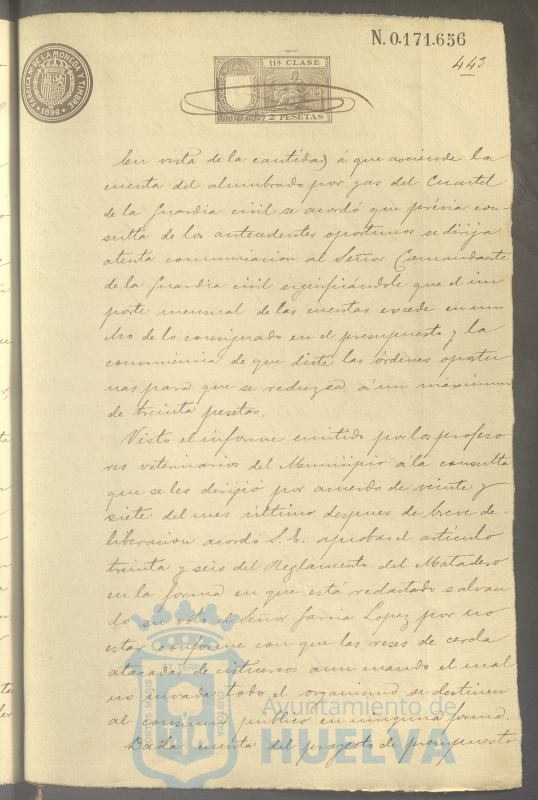 N. 0.171.656
443
FÁBRICA N. DE LA MONEDA Y TIMBRE
1896
11ª CLASE
2 PESETAS
En vista de la cantidad á que asciende la
cuenta del alumbrado por gas del Cuartel
de la Guardia civil se acordó que prévia con-
sulta de los antecedentes oportunos se dirija
atenta comunicacion al Señor Comandante
de la Guardia civil significándole que el im
porte mensual de las cuentas excede en mu
cho de lo consignado en el presupuesto y la
conveniencia de que dicte las órdenes oportu
nas para que se reduzca á un maximum
de treinta pesetas.
Visto el informe emitido por los profeso
res veterinarios del Municipio á la consulta
que se les dirigió por acuerdo de veinte y
siete del mes último despues de breve de-
liberacion acordó S. E. aprobar el artículo
treinta y seis del Reglamento del Matadero
en la forma en que está redactado salvan
do su voto el Señor Garcia Lopez por no
estar conforme con que las reses de cerda
atacadas de cisticercos aun cuando el mal
no invada todo el organismo se destinen
al consumo público en ninguna forma.
Dada cuenta del proyecto de presupuesto
PORTUS MARIS ET TERRAE CUSTODIA
Ayuntamiento de
HUELVA